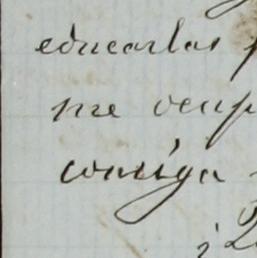 educarlas p
me ocup
consiga
¿Q